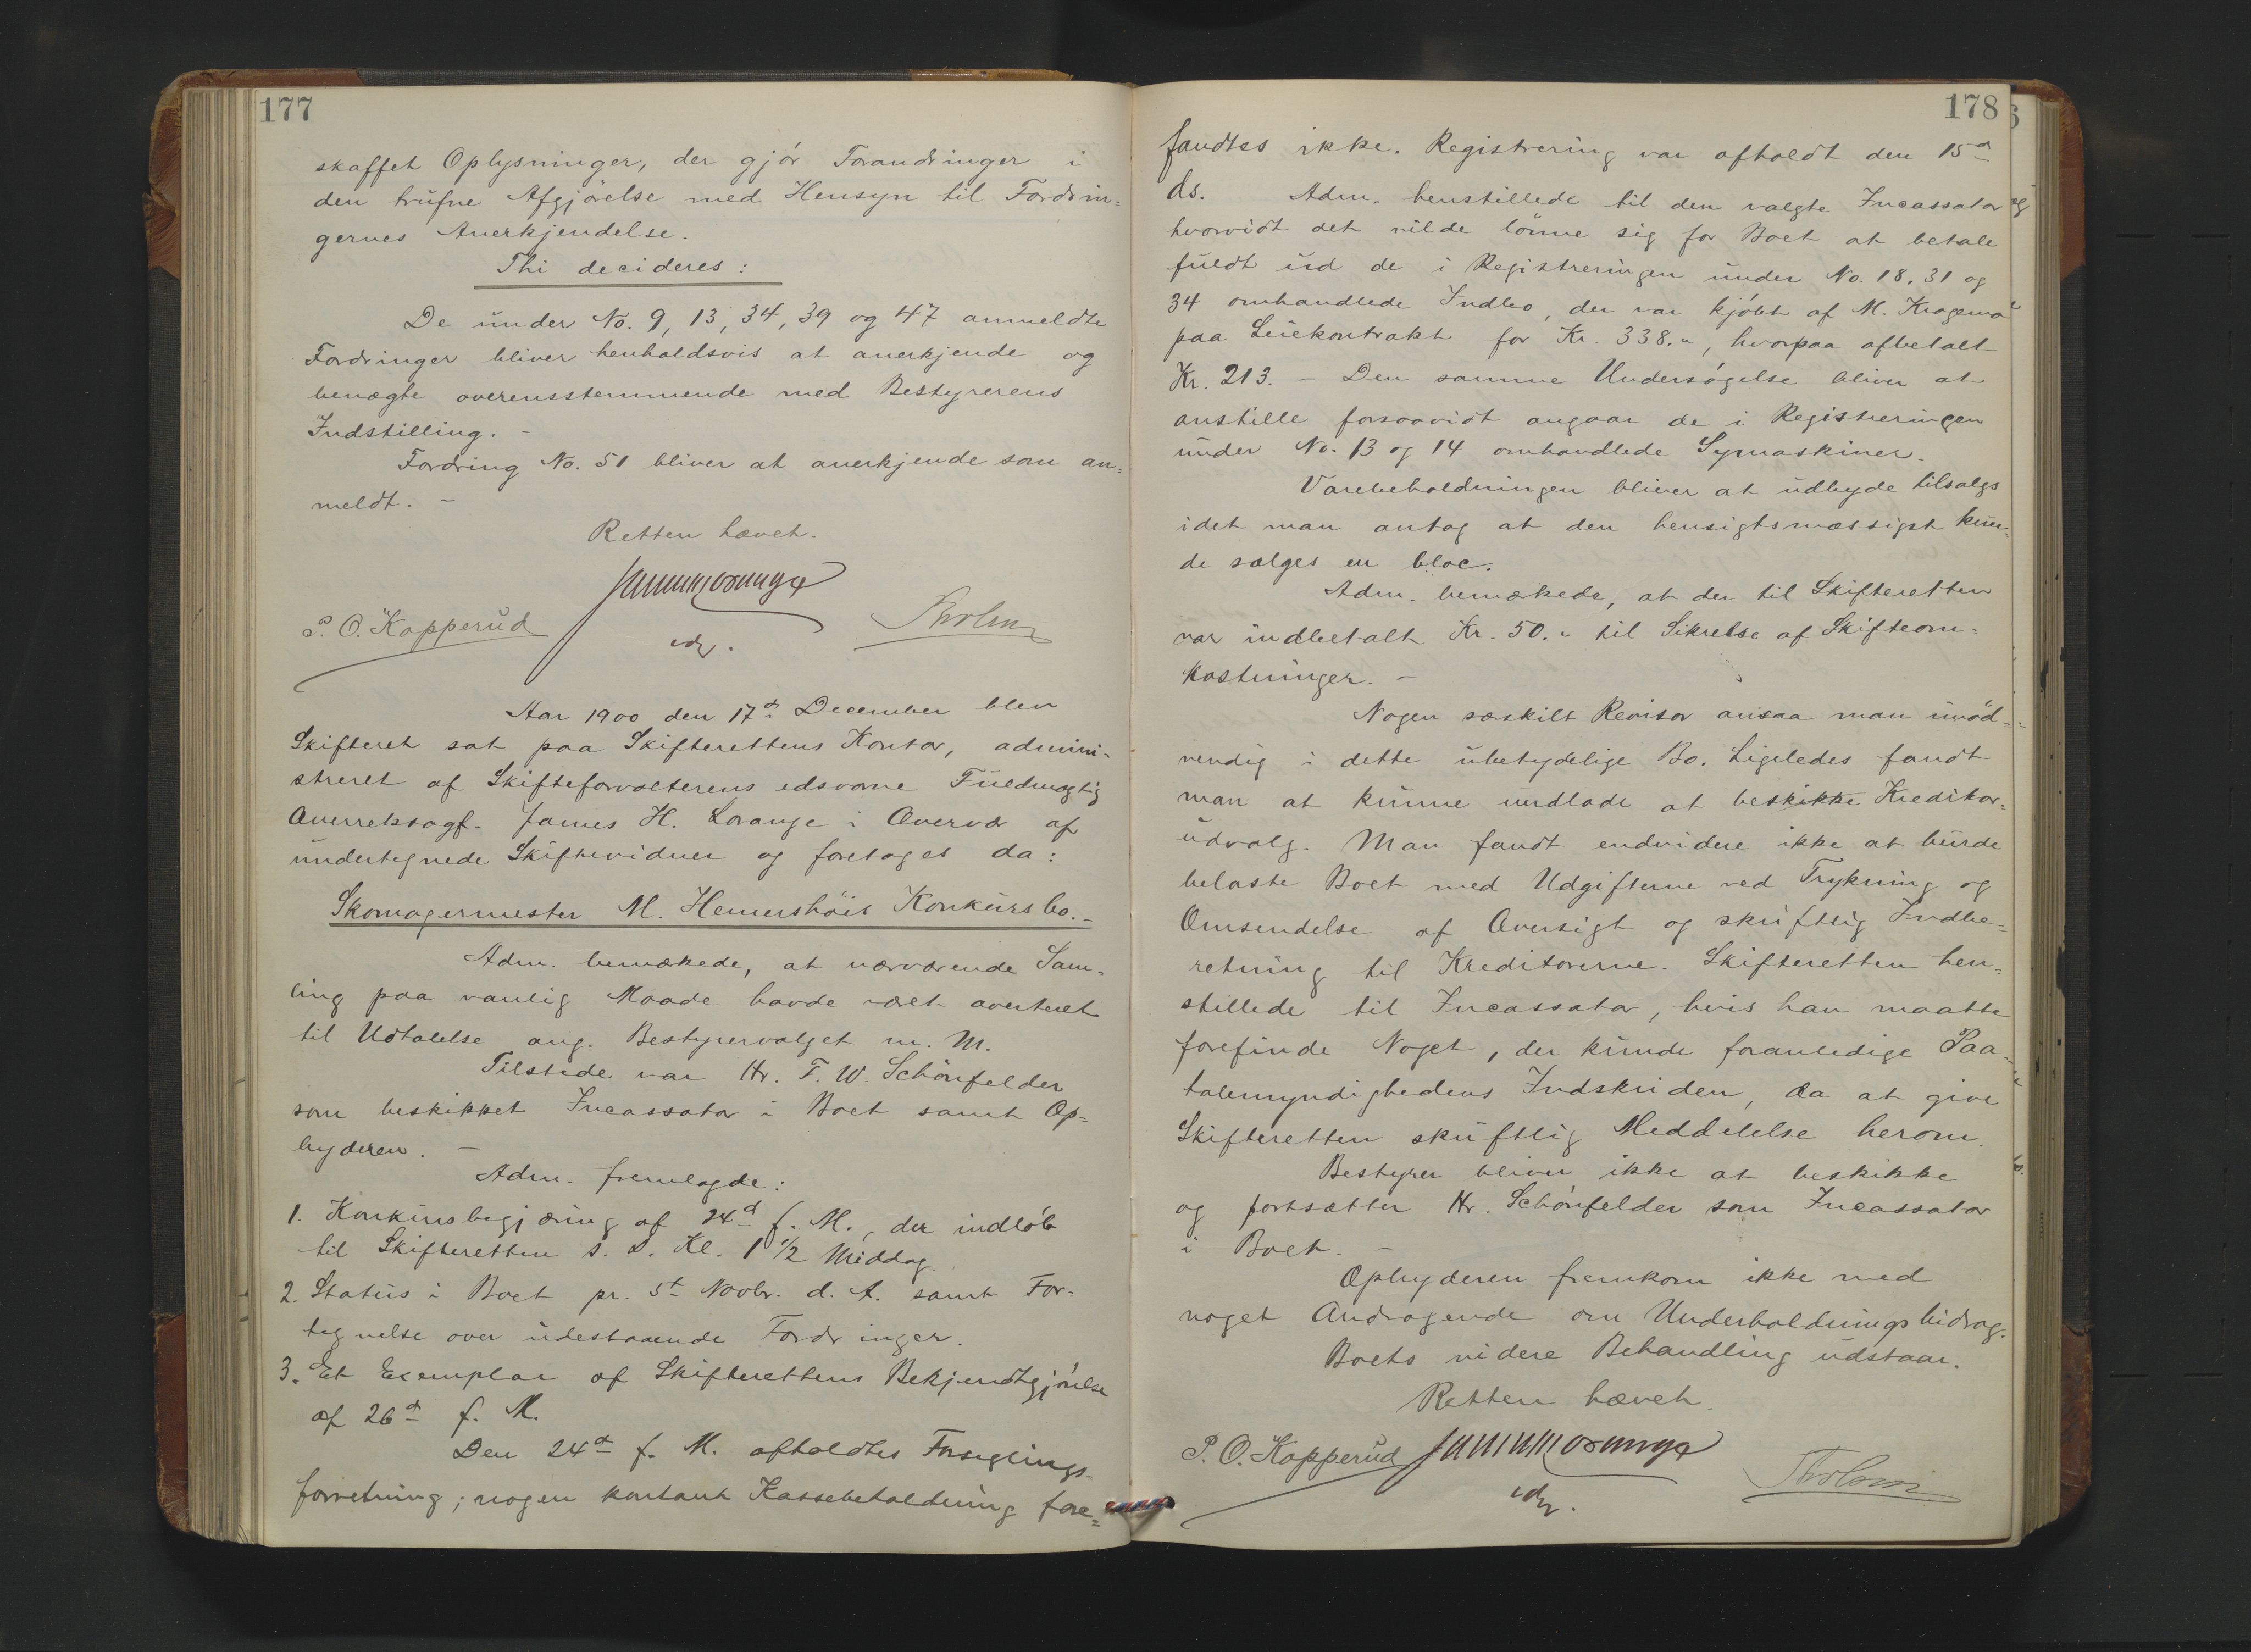 177
skaffet Oplysninger, der gjör Forandringer i
den trufne Afgjörelse med Hensyn til Fordrin=
gernes Anerkjendelse.
Thi decideres:
De under No. 9, 13, 34, 39 og 47 anmeldte
Fordringer bliver henholdsvis at anerkjende og
benægte overensstemmende med Bestyrerens
Indstilling. -
Fordring No. 51 bliver at anerkjende som an=
meldt. -
Retten hævet.
P. O. Kopperud
Aar 1900 den 17d December blev
Skifteret sat paa Skifterettens Kontor, admini-
streret af Skifteforvalterens edsvorne Fuldmægtig
Overretssagf. James H. Lorange i Overvær af
undertegnede Skiftevidner og foretaget da:
Skomagermester M. Hemershöis Konkursbo. -
Adm. bemærkede, at nærværende Sam=
ling paa vanlig Maade havde været averteret
til Udtalelse ang. Bestyrervalget m. M.
Tilstede var Hr. F. W. Schönfelder
som beskikket Incassator i Boet samt Op=
byderen. -
Adm. fremlagde:
1. Konkursbegjæring af 24d f. M., der indlöb
til Skifteretten s. D. Kl. 1 1/2 Middag.
2. Status i Boet pr. 5t Novbr. d. A. samt For=
tegnelse over udestaaende Fordringer.
3. Et Exemplar af Skifterettens Bekjendtgjörelse
af 26d f. M.
Den 24d f. M. afholdtes Forseglings-
forretning; nogen kontant Kassebeholdning fore=
178
fandtes ikke. Registrering var afholdt den 15d
ds. Adm. henstillede til den valgte Incassator
hvorvidt det vilde lönne sig for Boet at betale
fuldt ud de i Registreringen under No. 18, 31 og
34 omhandlede Indbo, der var kjöbt af M.
paa Leiekontrakt for Kr. 338.", hvorpaa afbetalt
Kr. 213. - Den samme Undersögelse bliver at
anstille forsaavidt angaar de i Registreringen
under No. 13 og 14 omhandlede Symaskiner.
Varebeholdningen bliver at udbyde tilsalgs
idet man antog at den hensigtsmæssigst kun=
de sælges en bloc.
Adm. bemærkede, at der til Skifteretten
var indbetalt Kr. 50." til Sikrelse af Skifteom=
kostninger. -
Nogen særskilt Revisor ansaa man unöd=
vendig i dette ubetydelige Bo. Ligeledes fandt
man at kunne undlade at beskikke Kreditor=
udvalg. Man fandt endvidere ikke at burde
belaste Boet med Udgifterne ved Trykning og
Omsendelse af Oversigt og skriftlig Indbe=
retning til Kreditorerne. Skifteretten hen=
stillede til Incassator, hvis han maatte
forefinde Noget, der kunde foranledige Paa=
talemyndighedens Indskriden, da at give
Skifteretten skriftlig Meddelelse herom.
Bestyrer bliver ikke at beskikke
og fortsætter Hr. Schönfelder som Incassator
i Boet. -
Opbyderen fremkom ikke med
noget Andragende om Underholdningsbidrag.
Boets videre Behandling udstaar.
Retten hævet.
P. O. Kopperud